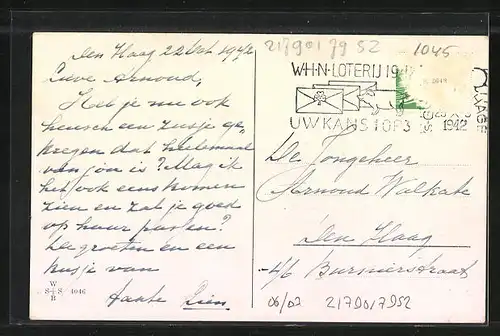 217901 79 52
1045
Den Haag 22 Oct 1942
Lieve Arnoud,
Heb je nu ook
heusch een zusje ge-
kregen dat heelemaal
van jou is? Mag ik
het ook eens komen
zien en zal je goed
op haar passen?
De groeten en een
kusje van
tante Zien
W
S+S 4046
B
W.H.N-LOTERIJ 19
UW KANS 1 OP 3
1942
De Jongeheer
Arnoud Walkate
Den Haag
46 Burnierstraat
06/07 217901 7952